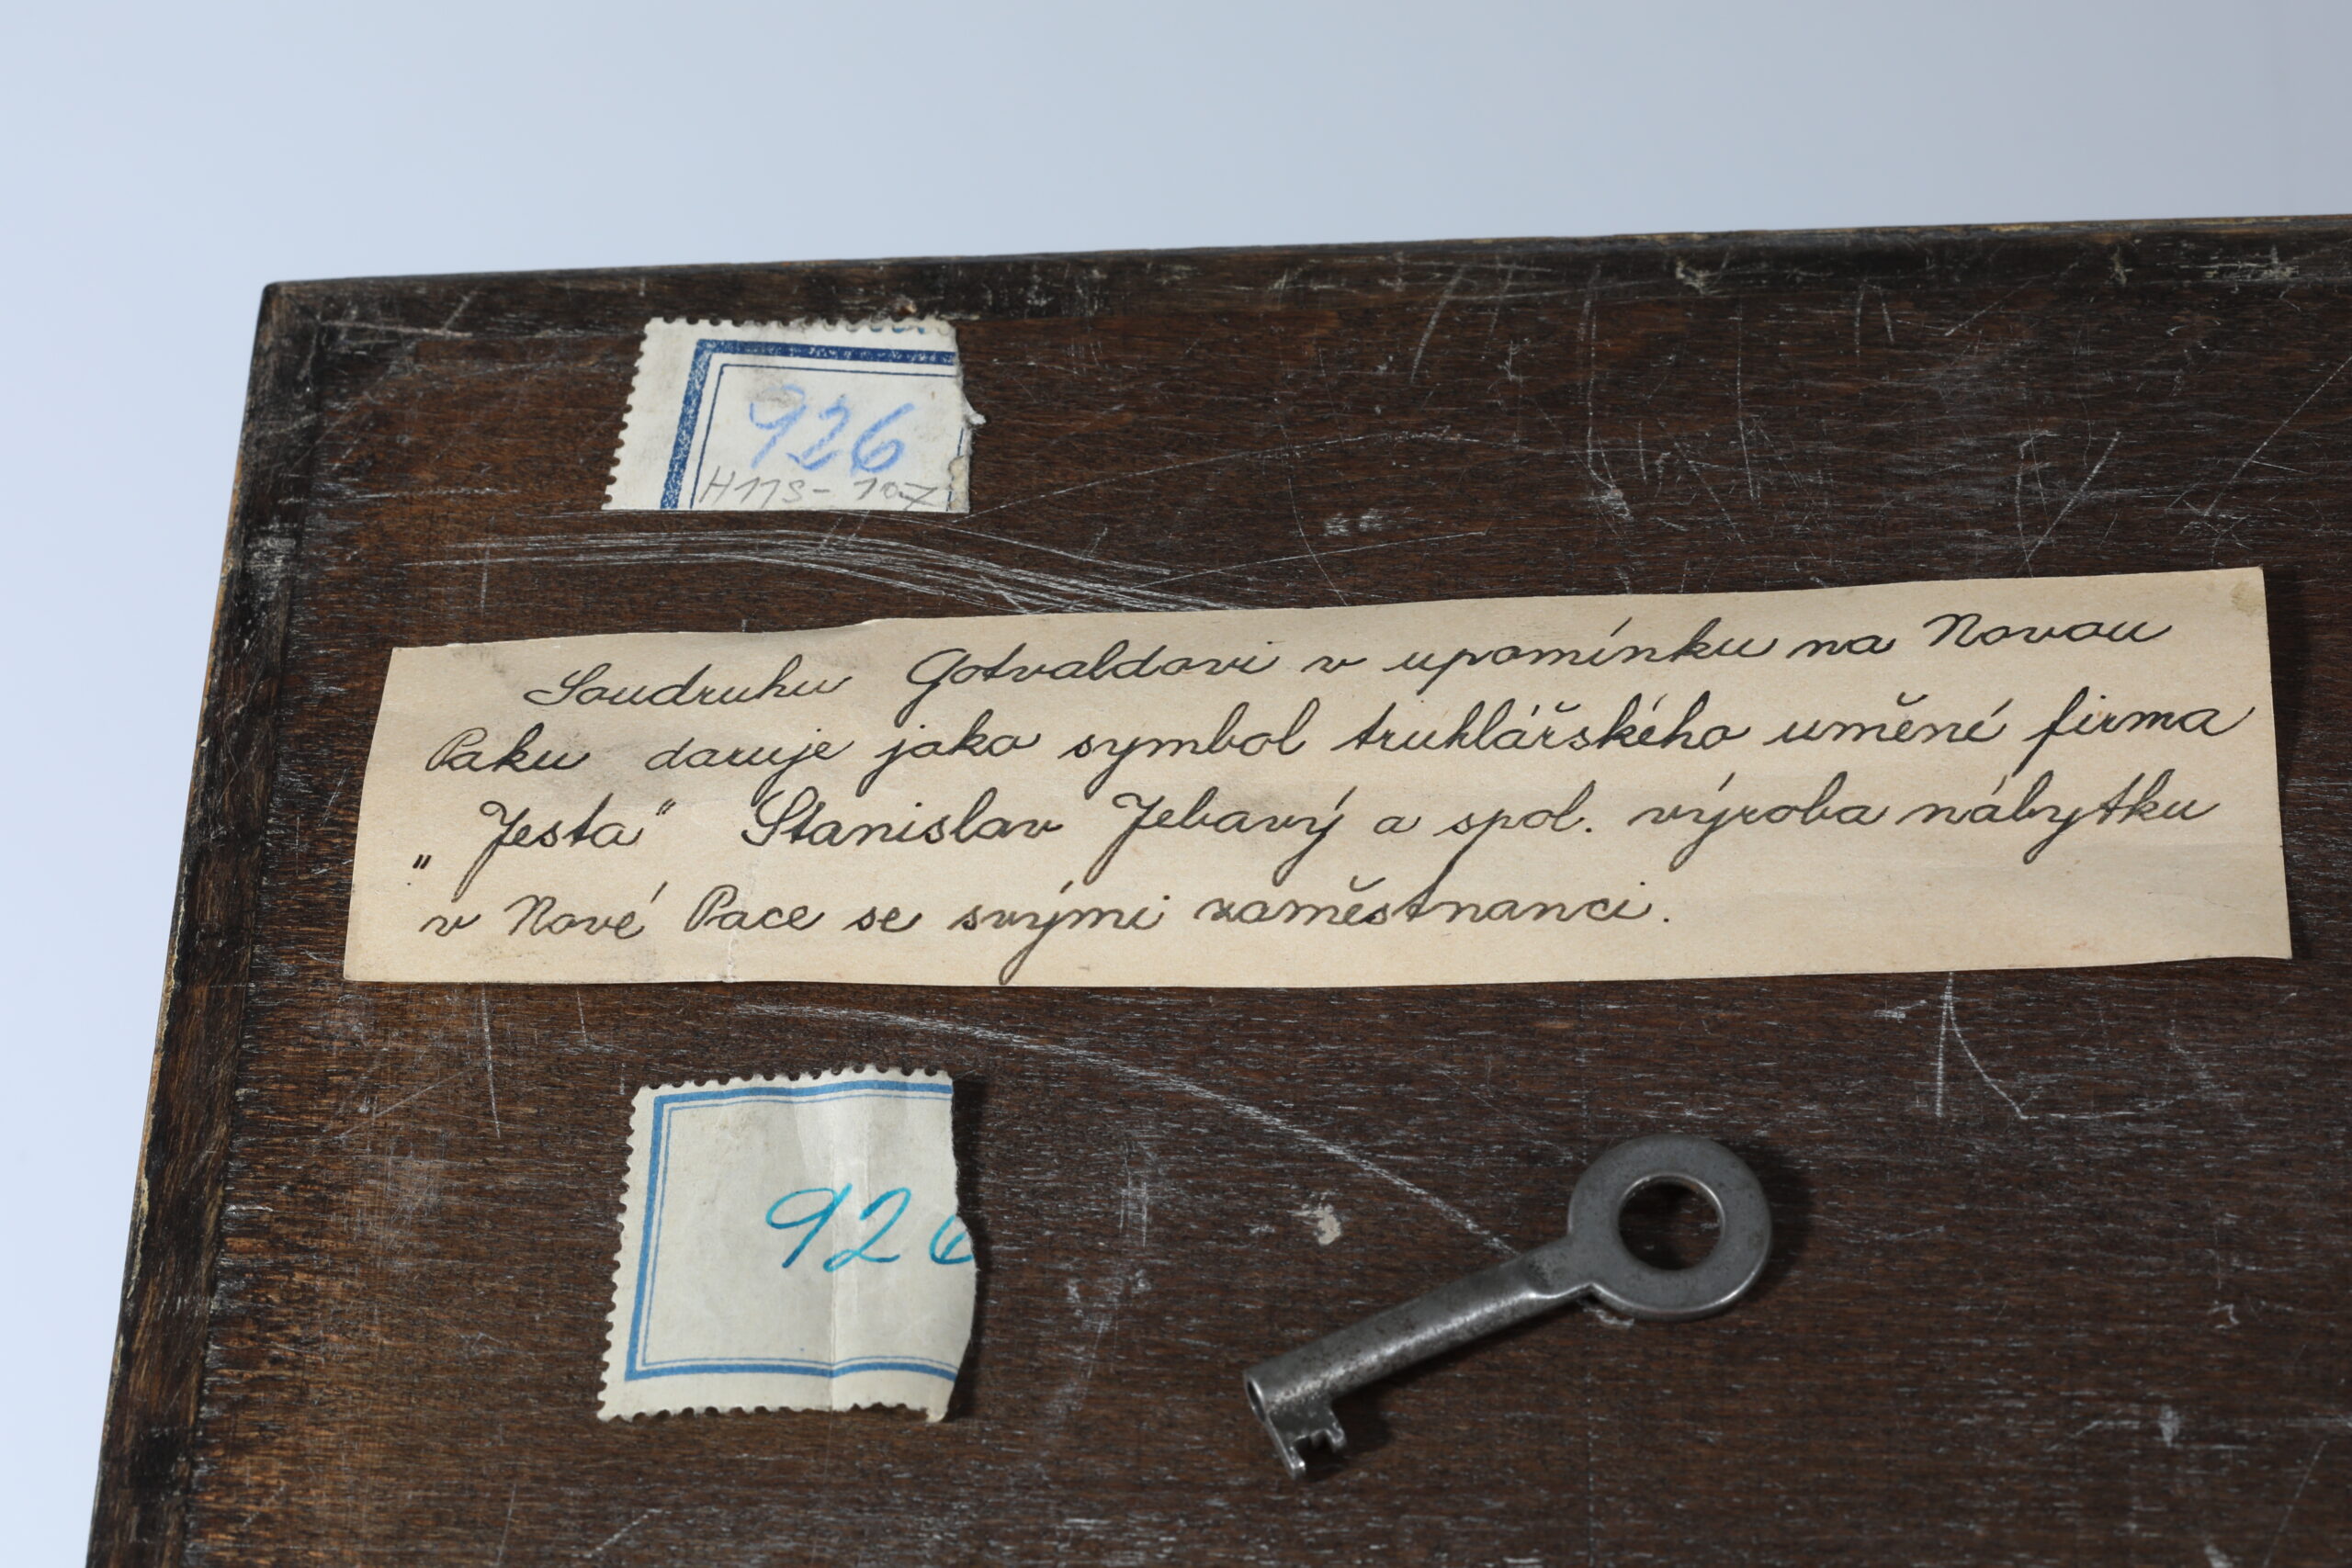 926
H11S-107
Soudruhu Gotvaldovi v upomínku na Novou
Paku daruje jako symbol truhlářského umění firma
„Jesta" Stanislav Jebavý a spol. výroba nábytku
v Nové Pace se svými zaměstnanci.
926